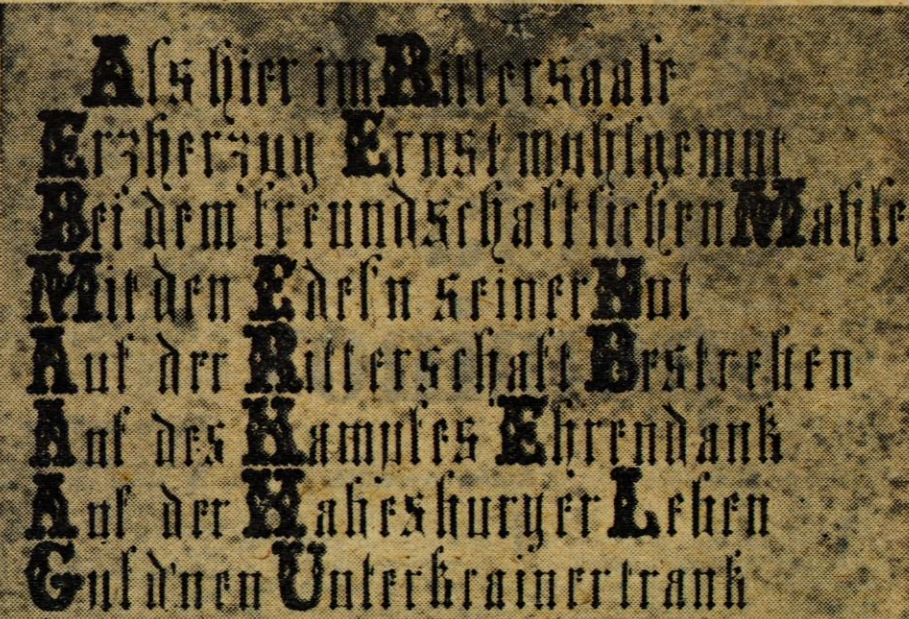 Als hier im Rittersaale
Erzherzog Ernst wohlgemut
Bei dem freundschaftlichen Mahle
Mit den Edel'n seiner Hut
Auf der Ritterschaft Bestreben
Auf des Kampfes Ehrendank
Auf der Habesburger Leben
Guld'nen Unterkrainer trank